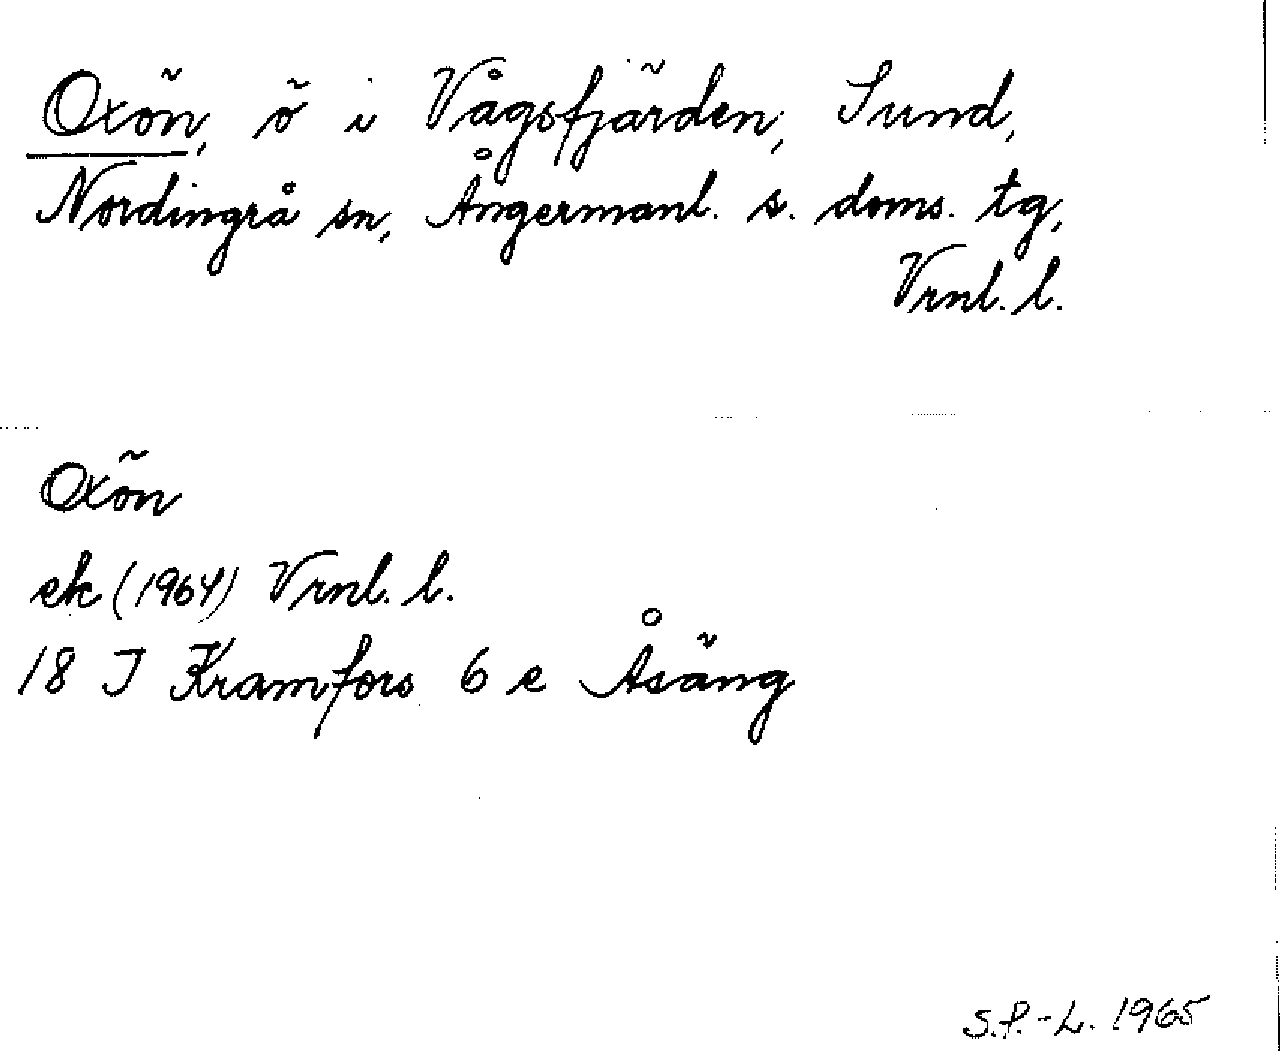 Oxön, ö i Vågsfjärden, Sund,
Nordingrå sn, Ångermanl. s. doms. tg,
Vrnl. l.
Oxön
ek (1964) Vrnl. l.
18 I Kramfors 6 e Åsäng
S.P.-L. 1965